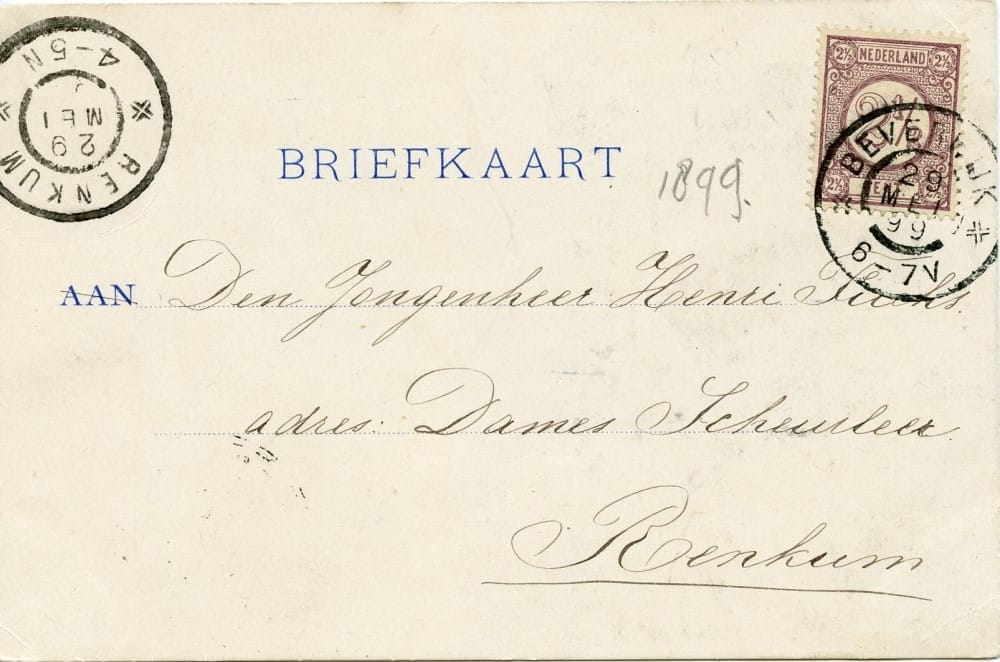 4-5N
29
MEI
RENKUM
2½ NEDERLAND 2½
2½
2½
BEVERWIJK
29
MEI
99
6-7V
BRIEFKAART
1899.
AAN Den Jongenheer Henri
adres: Dames Scheurleer.
Renkum